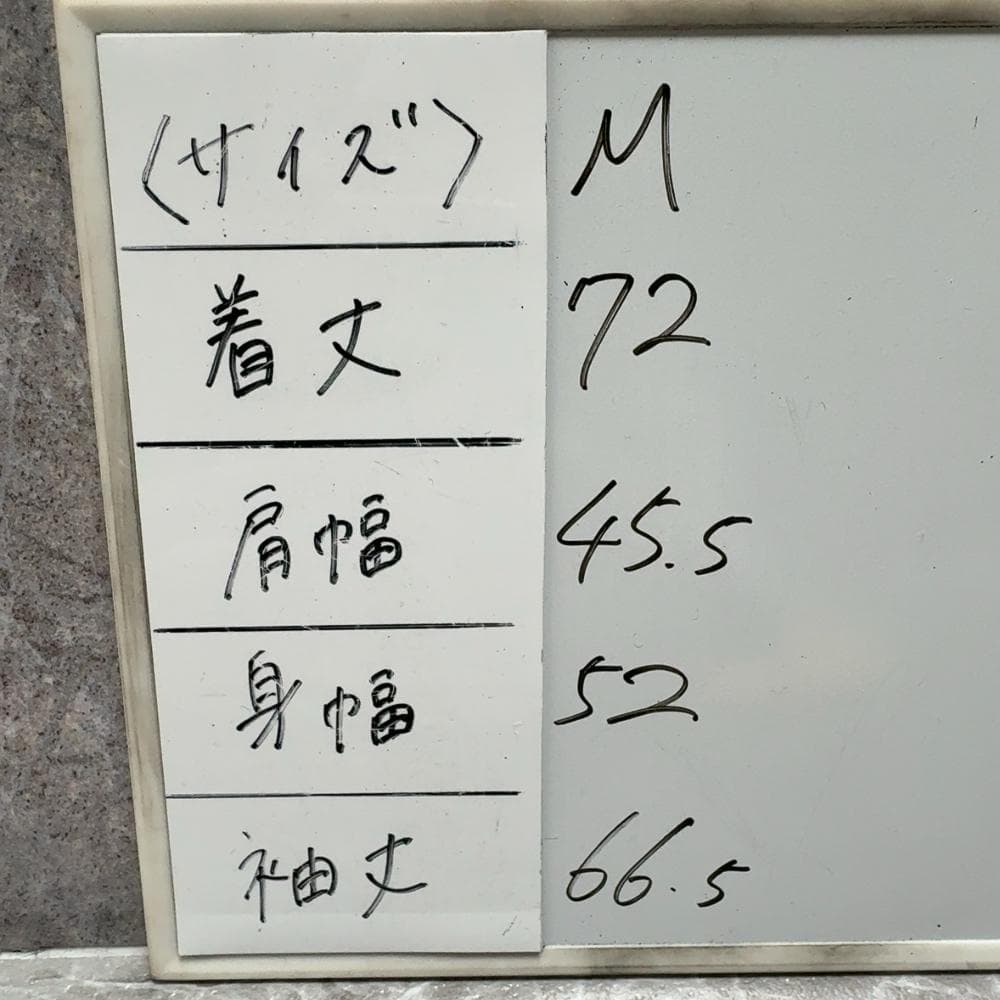 〈サイズ〉 M
着丈 72
肩幅 45.5
身幅 52
袖丈 66.5